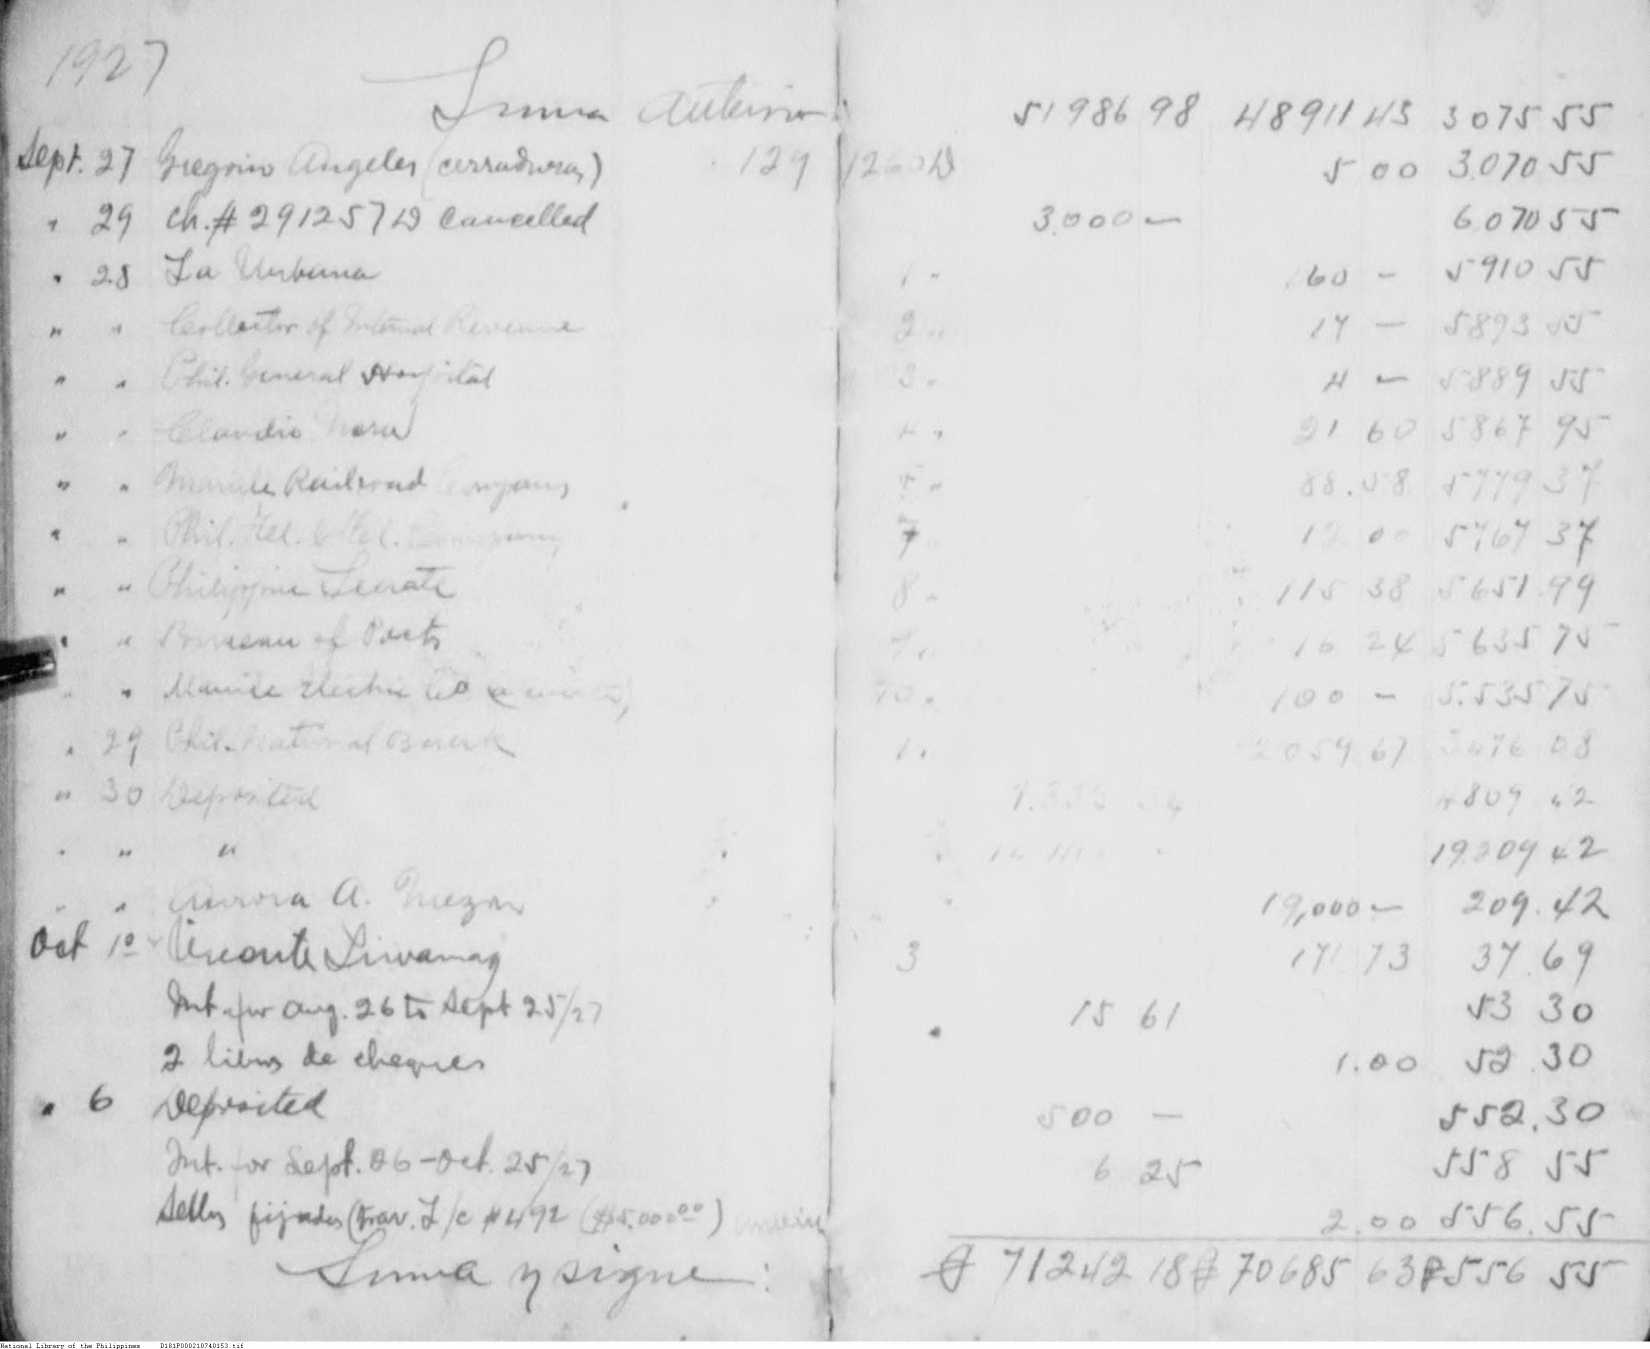 1927
Suma Anterior: 51986 98 48911 43 3075 55
Sept. 27 Gregorio Angeles (cerraduras) 129 1260 D 5 00 3.070 55
" 29 Ch. # 291257 D Cancelled 3.000 — 6.070 55
" 28 La Urbana 1 " 160 — 5910 55
" " Collector of Internal Revenue 2 " 17 — 5893 55
" " Phil. General Hospital 3 " 4 — 5889 55
" " Claudio 4 " 21 60 5867 95
" " Manila Railroad Company 5 " 88.58 5779 37
" " Phil. Tel. & Tel. Company 7 12 00 5767 37
" " Philippine Senate 8 " 115 38 5651.99
" " Bureau of Posts 9 " 16 24 5635 75
" " Manila Electric Co 10 " 100 — 5.535 75
" 29 Phil. National Bank 1 " 2059 67 3476 08
" 30 Deposited 1.333 34 4809 42
" " " 19.209 42
" " Aurora A. Quezon 19,000 — 209.42
Oct 1º Vicente Liwanag 3 171 73 37.69
Int. for Aug. 26 to Sept 25/27 15 61 53 30
2 libros de cheques 1.00 52.30
" 6 Deposited 500 — 552.30
Int. for Sept. 26 - Oct. 25/27 6 25 558 55
Sellos fijados (trav. L/c #492 (₱5.000.00) 2.00 556.55
Suma y sigue: ₱ 71242 18 ₱ 70685 63 ₱ 556 55
National Library of the Philippines D181P000210740153.tif